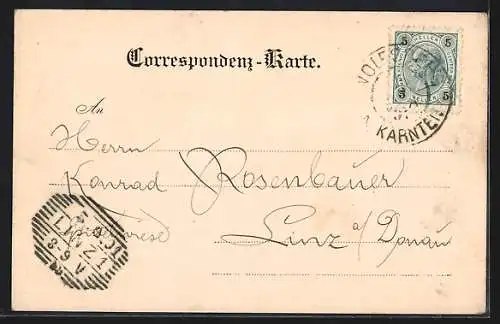 Correspondenz-Karte.
5 5
5 5
KÄRNTEN
An
Herrn
Konrad Rosenbauer
Linz a/ Donau
LINZ